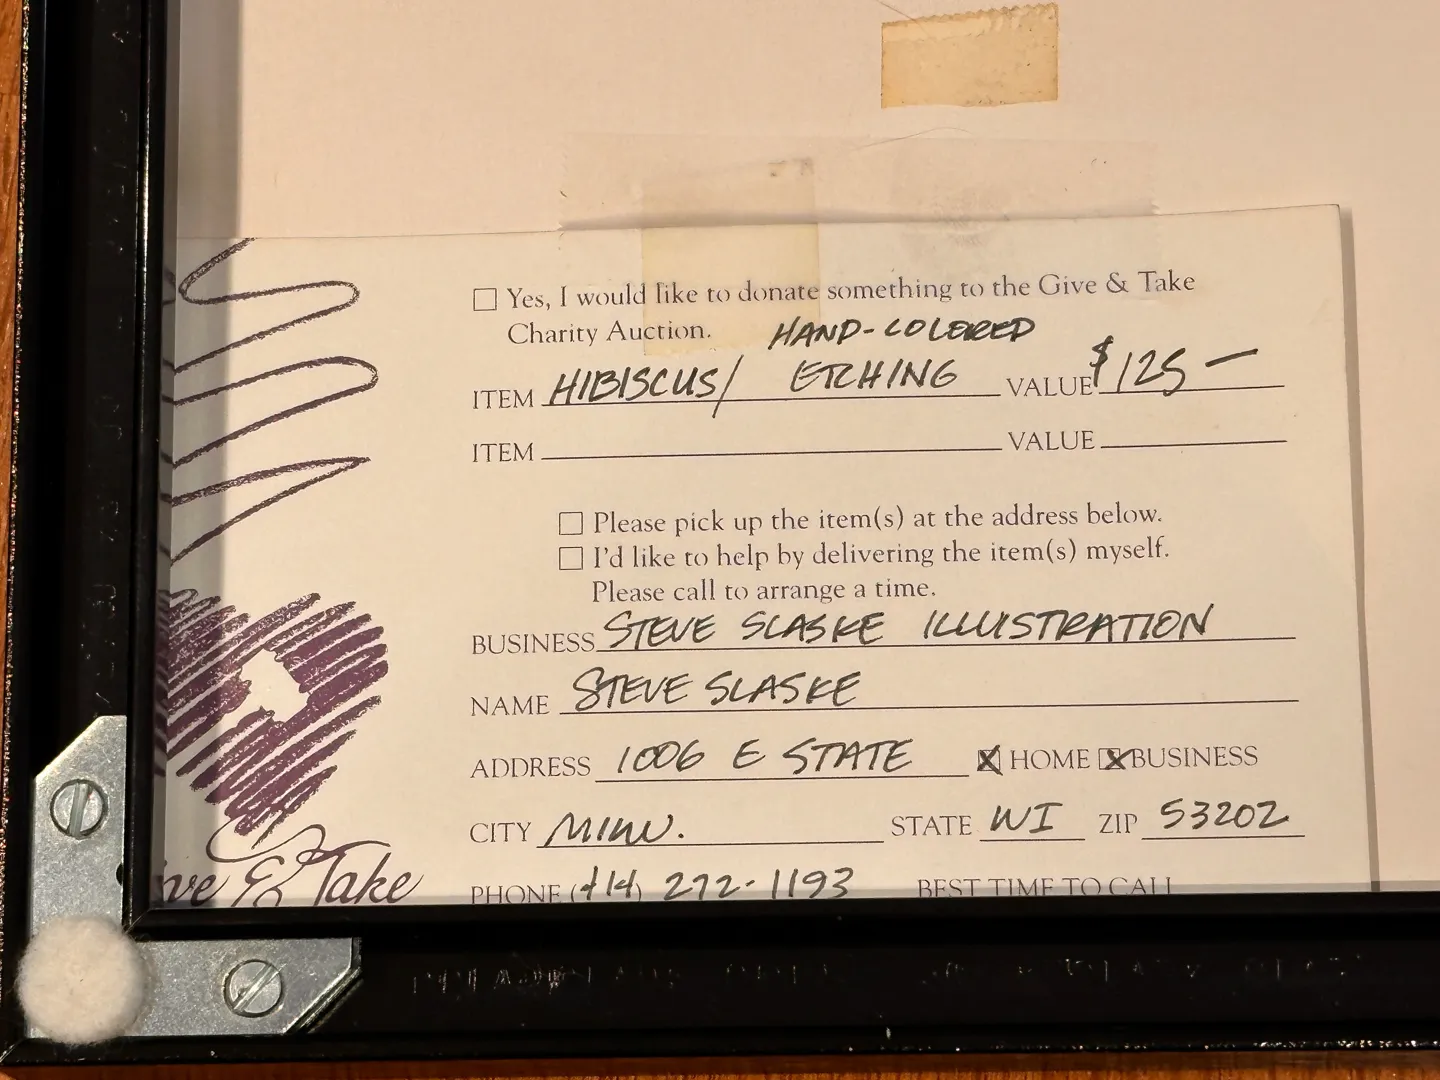 Yes, I would like to donate something to the Give & Take
Charity Auction. HAND-COLORED
ITEM HIBISCUS/ ETCHING VALUE $125 —
ITEM VALUE
Please pick up the item(s) at the address below.
I'd like to help by delivering the item(s) myself.
Please call to arrange a time.
BUSINESS STEVE SLASKE ILLUSTRATION
NAME STEVE SLASKE
ADDRESS 1006 E STATE HOME BUSINESS
CITY MILW. STATE WI ZIP 53202
PHONE (414) 272-1193 BEST TIME TO CALL
ve & Take